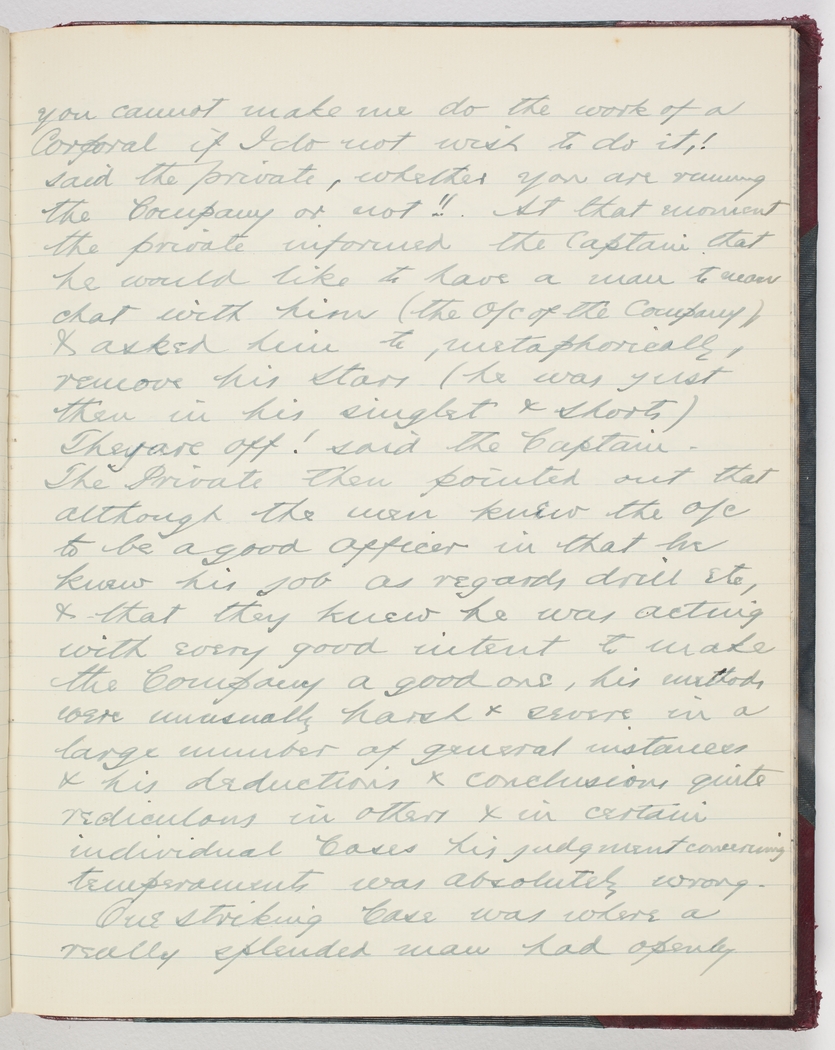 you cannot make me do the work of a
Corporal if I do not wish to do it,!
said the private, whether you are running
the Company or not!!. At that moment
the private informed the Captain that
he would like to have a man to man
chat with him (the O/c of the Company)
& asked him to, metaphorically,
remove his stars (he was just
then in his singlet & shorts)
They are off! said the Captain.
The Private then pointed out that
although the men knew the O/c
to be a good officer in that he
knew his job as regards drill etc,
& that they knew he was acting
with every good intent to make
the Company a good one, his methods
were unusually harsh & severe in a
large number of general instances
& his deductions & conclusions quite
rediculous in others & in certain
individual Cases his judgment concerning
temperaments was absolutely wrong.
One striking Case was where a
really splended man had openly